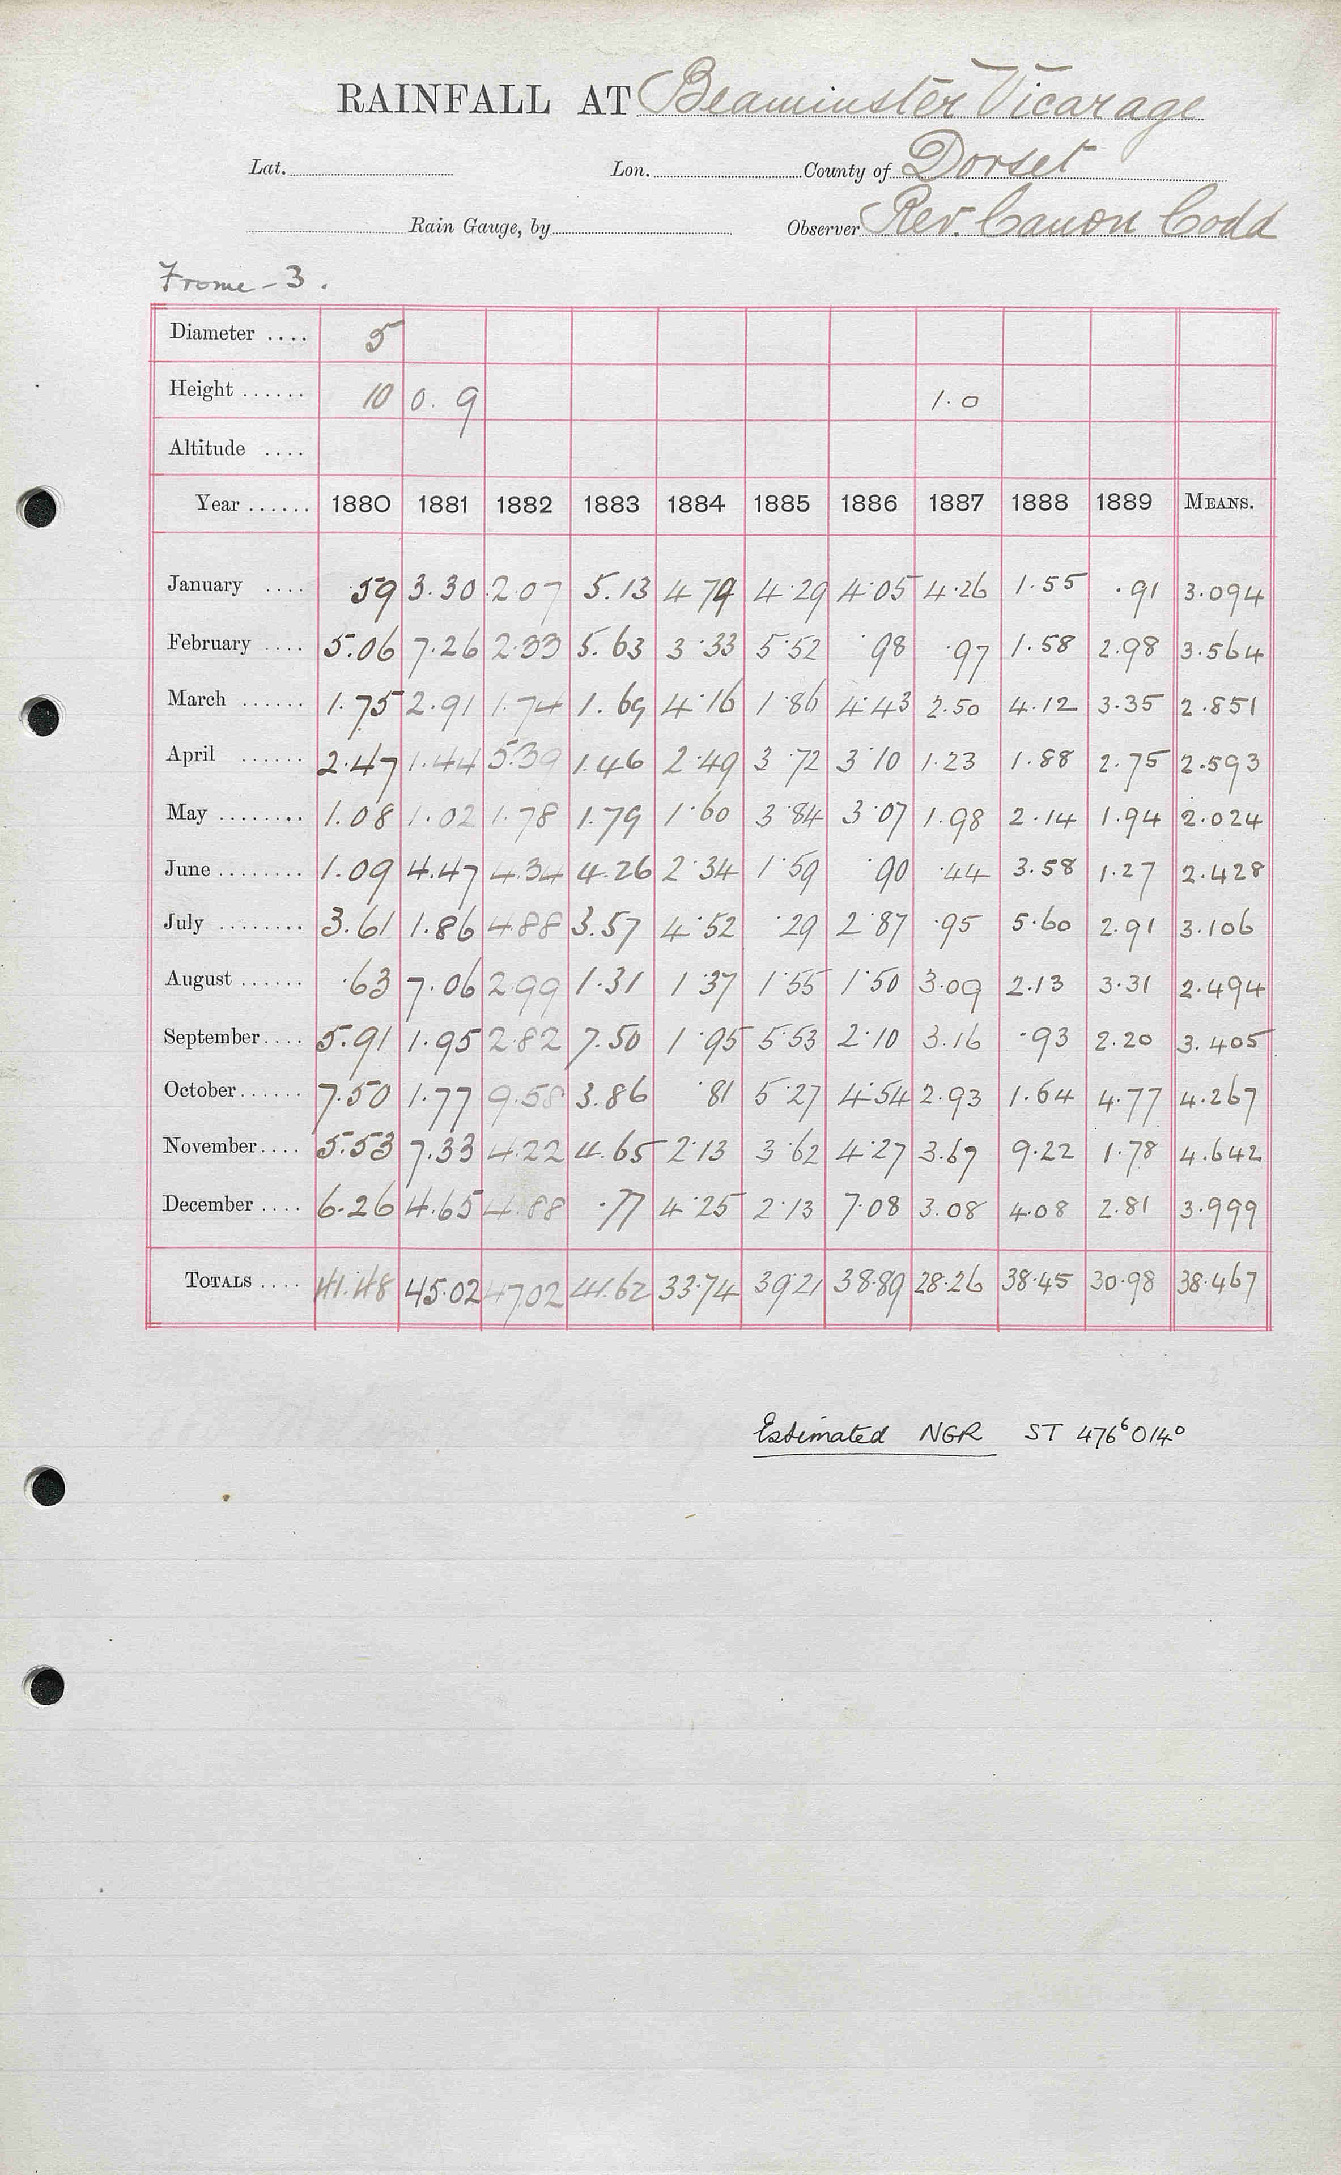 RAINFALL AT Beaminster Vicarage
Lat. Lon. County of Dorset
Rain Gauge, by Observer Rev. Canon Codd
Frome - 3.
Diameter .... 5
Height ...... 10 0.9 1.0
Altitude ....
Year ...... 1880 1881 1882 1883 1884 1885 1886 1887 1888 1889 MEANS.
January .... .59 3.30 2.07 5.13 4.79 4.29 4.05 4.26 1.55 .91 3.094
February .... 5.06 7.26 2.33 5.63 3.33 5.52 .98 .97 1.58 2.98 3.564
March ...... 1.75 2.91 1.74 1.69 4.16 1.86 4.43 2.50 4.12 3.35 2.851
April ...... 2.47 1.44 5.39 1.46 2.49 3.72 3.10 1.23 1.88 2.75 2.593
May ........ 1.08 1.02 1.78 1.79 1.60 3.84 3.07 1.98 2.14 1.94 2.024
June ........ 1.09 4.47 4.34 4.26 2.34 1.59 .90 .44 3.58 1.27 2.428
July ........ 3.61 1.86 4.88 3.57 4.52 .29 2.87 .95 5.60 2.91 3.106
August ...... .63 7.06 2.99 1.31 1.37 1.55 1.50 3.09 2.13 3.31 2.494
September .... 5.91 1.95 2.82 7.50 1.95 5.53 2.10 3.16 .93 2.20 3.405
October ...... 7.50 1.77 9.58 3.86 .81 5.27 4.54 2.93 1.64 4.77 4.267
November .... 5.53 7.33 4.22 4.65 2.13 3.62 4.27 3.67 9.22 1.78 4.642
December .... 6.26 4.65 4.88 .77 4.25 2.13 7.08 3.08 4.08 2.81 3.999
TOTALS .... 41.48 45.02 47.02 41.62 33.74 39.21 38.89 28.26 38.45 30.98 38.467
Estimated NGR ST 476⁶014⁰